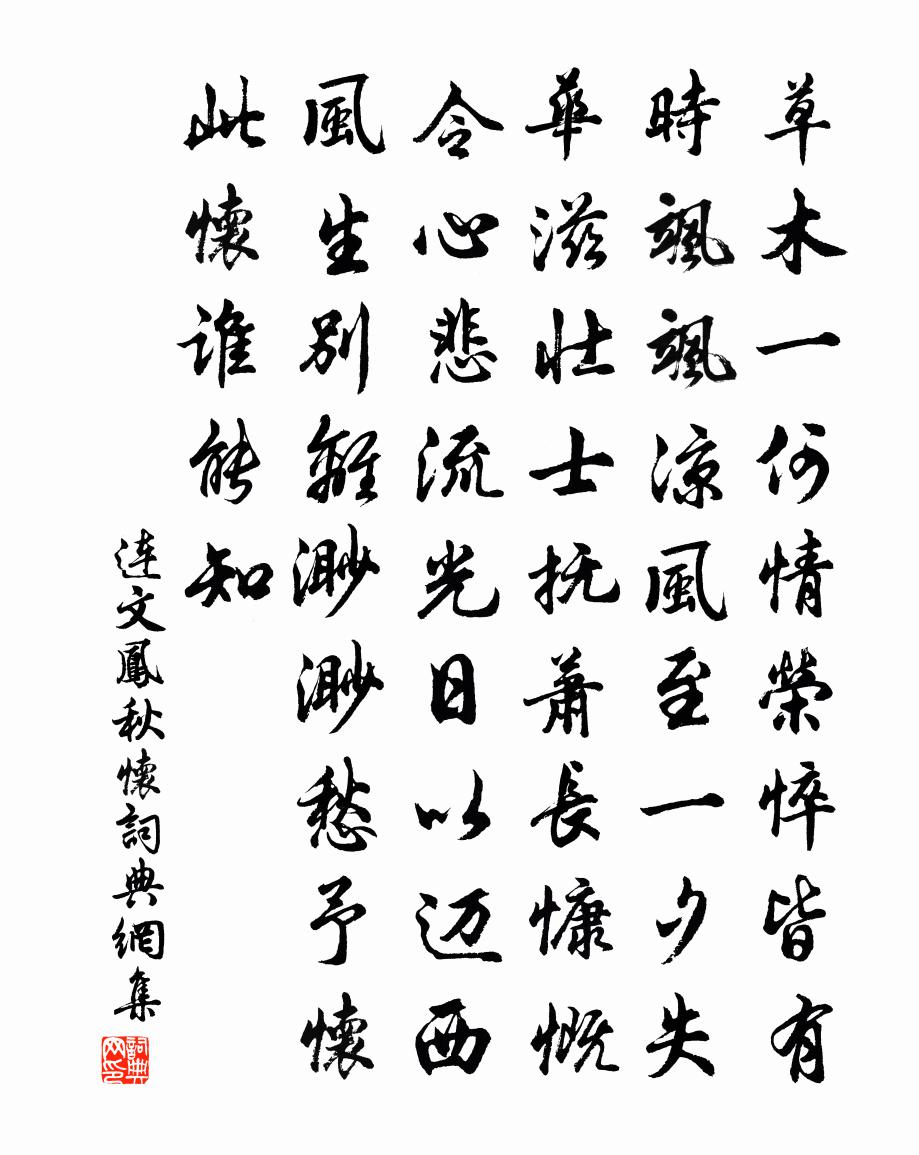 草木一何情榮悴皆有
時颯颯涼風至一夕失
華滋壯士抚蕭長慷慨
令心悲流光日以迈西
風生別離渺渺愁予懷
此懷誰能知
连文鳳秋懷詞典網集
詞典网印